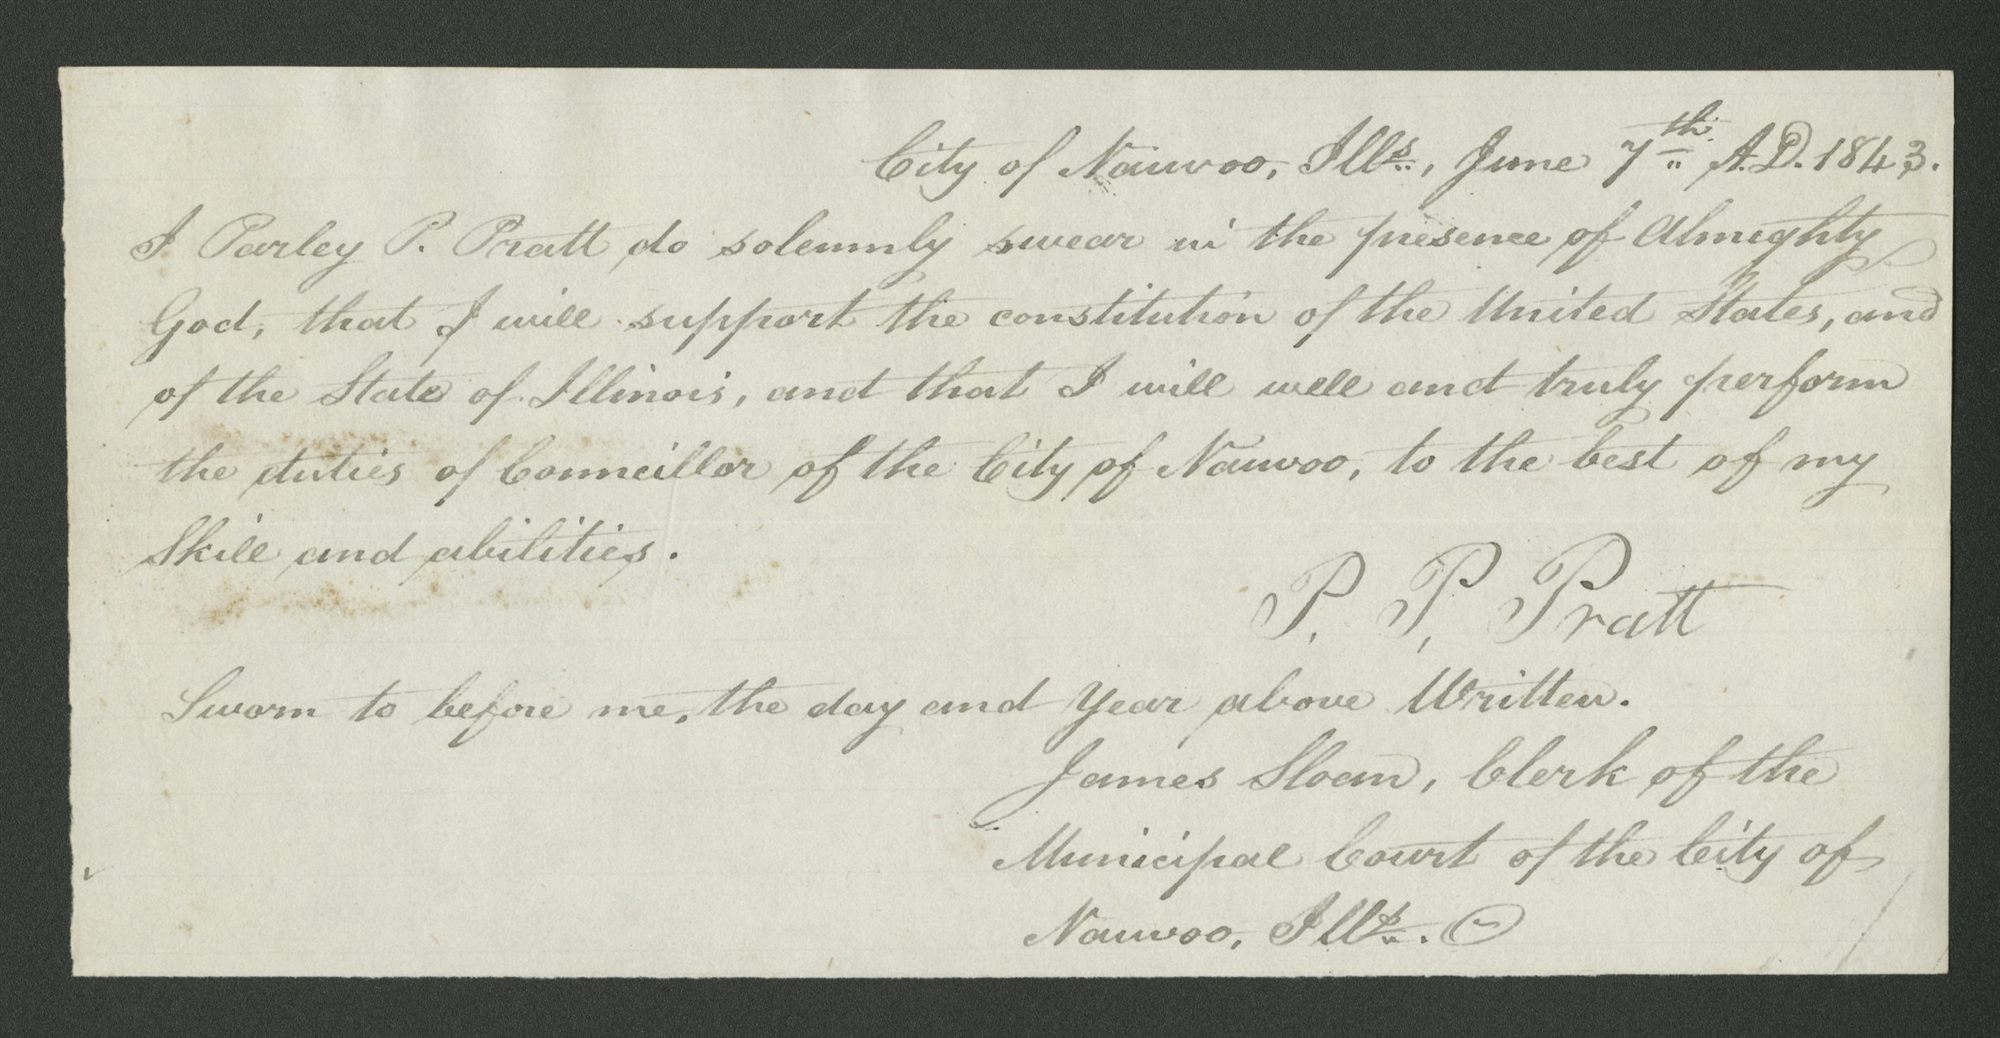 City of Nauvoo, Ills., June 7th A.D. 1843.
I Parley P. Pratt do solemnly swear in the presence of Almighty
God, that I will support the constitution of the United States, and
of the State of Illinois, and that I will well and truly perform
the duties of Councillor of the City of Nauvoo, to the best of my
Skill and abilities.
P. P. Pratt
Sworn to before me, the day and Year above Written.
James Sloan, Clerk of the
Municipal Court of the City of
Nauvoo, Ills.